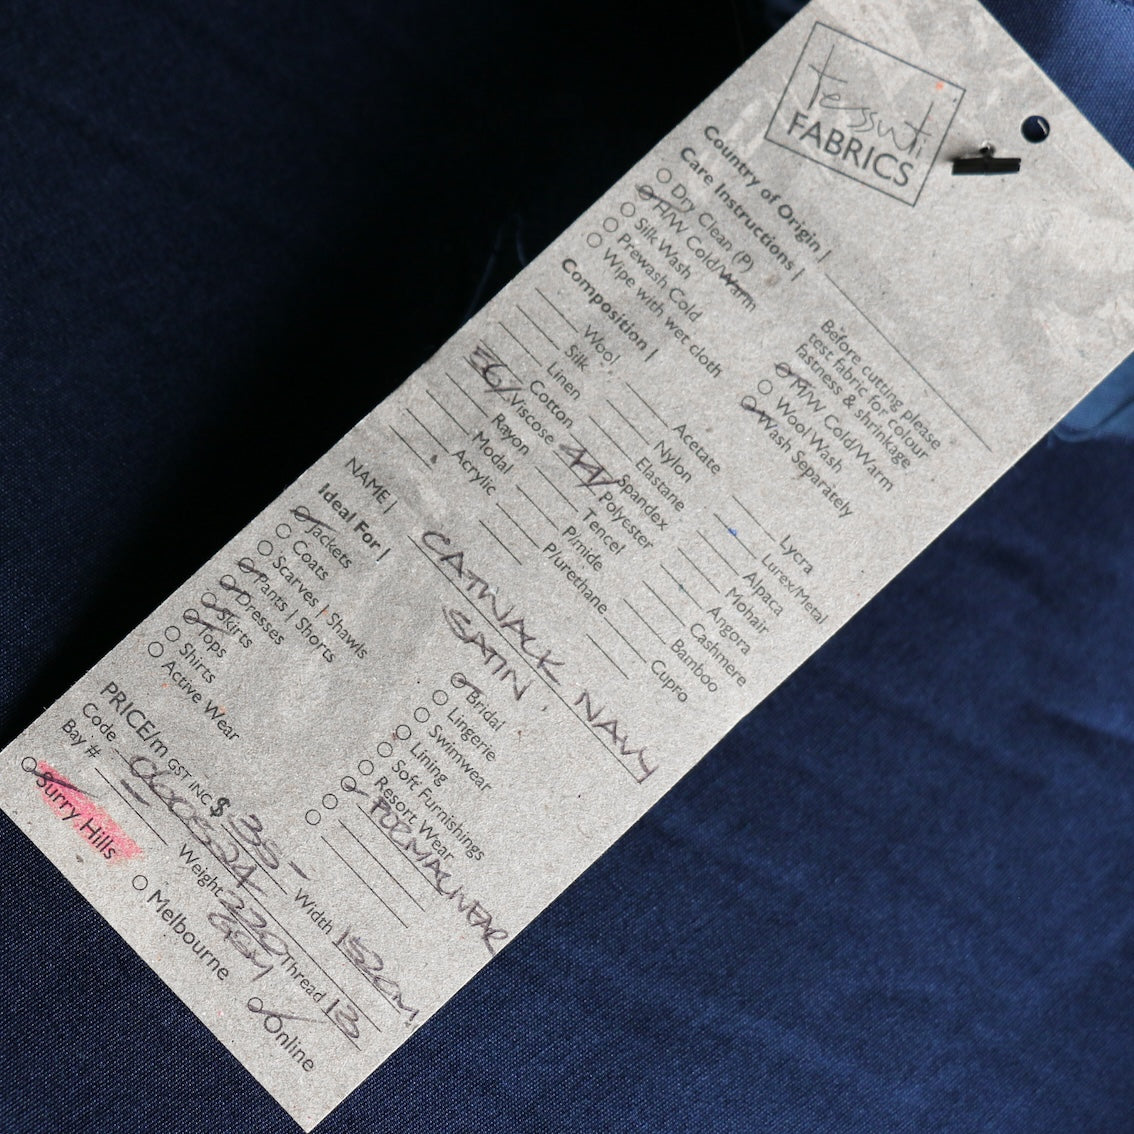 tessuti
FABRICS
Country of Origin |
Care Instructions |
Dry Clean (P)
H/W Cold/Warm
Silk Wash
Prewash Cold
Wipe with wet cloth
Before cutting please
test fabric for colour
fastness & shrinkage
M/W Cold/Warm
Wool Wash
Wash Separately
Composition |
Wool
Silk
Linen
Cotton
56/ Viscose
Rayon
Modal
Acrylic
Acetate
Nylon
Elastane
Spandex
44/ Polyester
Tencel
P/mide
P/urethane
Lycra
Lurex/Metal
Alpaca
Mohair
Angora
Cashmere
Bamboo
Cupro
NAME | CATWALK NAVY
SATIN
Ideal For |
Jackets
Coats
Scarves | Shawls
Pants | Shorts
Dresses
Skirts
Tops
Shirts
Active Wear
Bridal
Lingerie
Swimwear
Lining
Soft Furnishings
Resort Wear
FORMALWEAR
PRICE/m GST INC $ 35- Width 152CM
Code Weight 220 GSM Thread 13
Bay #
Surry Hills
Melbourne
Online